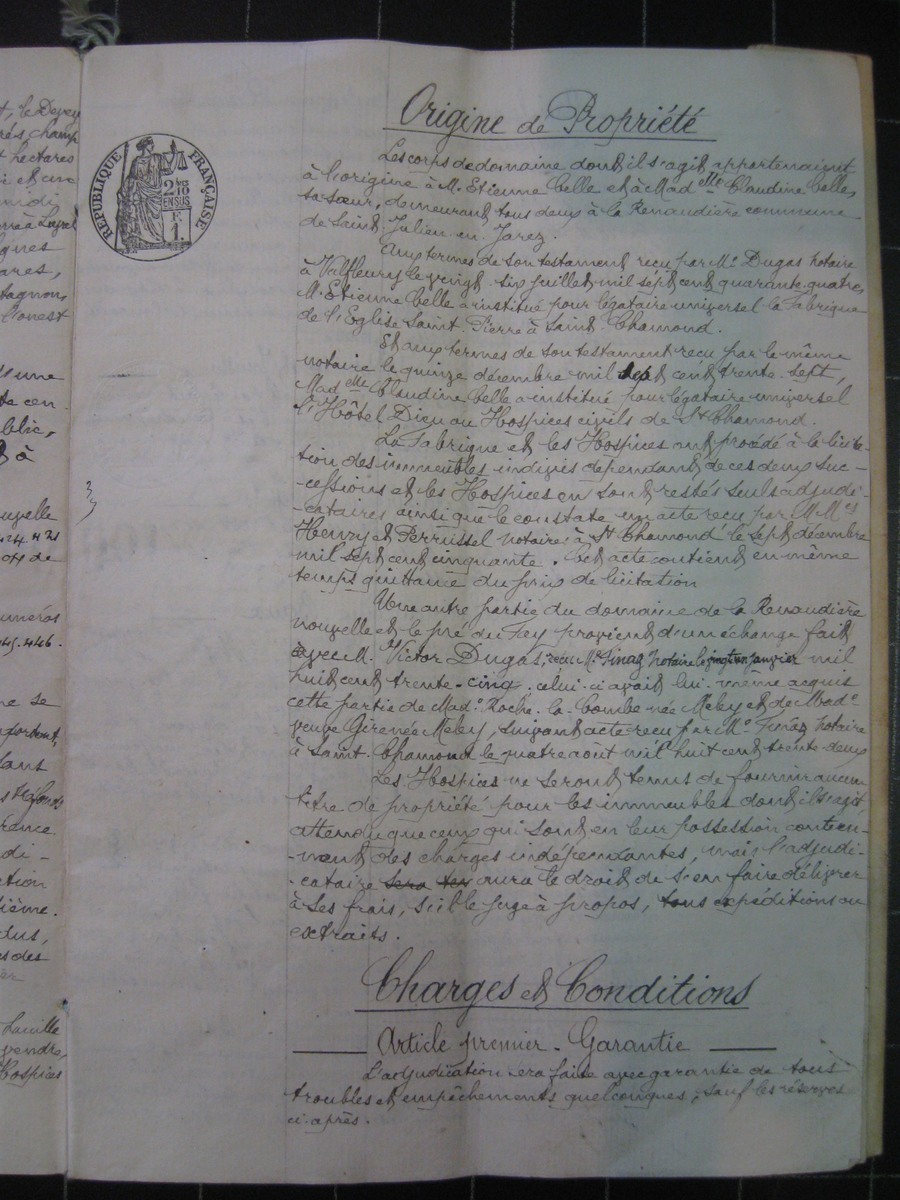 t, le Devey
rés, champ
t hectares
i et un
midi
gnes
ares,
tagnon,
l'ouest
d'une
te cen
blic,
à
ouvelle
424 421
numéros
445. 446.
ne se
mportent,
dans
rence
di -
ction
ième.
dus,
es des
er
vendre,
Hospices
RÉPUBLIQUE FRANÇAISE
2/10
EN SUS
F.
1.
Origine de Propriété
Les corps de domaine dont il s'agit appartenaient
à l'origine à M. Etienne Celle et à Mad elle Claudine Celle,
sa sœur, demeurant tous deux à la Renaudière commune
de Saint Julien en Jarez.
Aux termes de son testament reçu par Me Dugas notaire
à Valfleury le vingt six juillet mil sept cent quarante quatre,
M. Etienne Celle a institué pour légataire universel la Fabrique
de l'Eglise Saint Pierre à Saint Chamond.
Et aux termes de son testament reçu par le même
notaire le quinze décembre mil sept cent trente-sept,
Mad elle Claudine Celle a institué pour légataire universel
l'Hôtel Dieu ou Hospices civils de St Chamond.
La Fabrique et les Hospices ont procédé à la licita-
tion des immeubles indivis dépendant de ces deux suc-
-cessions et les Hospices en sont restés seuls adjudi-
-cataires ainsi que le constate un acte reçu par M Mes
Henry et Perrussel notaires à St Chamond le sept décembre
mil sept cent cinquante. Cet acte contient en même
temps quittance du prix de licitation
Une autre partie du domaine de la Renaudière
nouvelle et le pré du Fay provient d'un échange fait
avec M. Victor Dugas, reçu Me Finaz notaire le vingt un janvier mil
huit cent trente-cinq. celui-ci avait lui-même acquis
cette partie de Made Roche-la-Combe née Meley et de Made
veuve Girenée Meley, suivant acte reçu par Me Finaz notaire
à Saint-Chamond le quatre août mil huit cent trente-deux
Les Hospices ne seront tenus de fournir aucun
titre de propriété pour les immeubles dont il s'agit,
attendu que ceux qui sont en leur possession contien-
-nent des charges indépendantes, mais l'adjudi-
-cataire sera ten aura le droit de s'en faire délivrer
à ses frais, s'il le juge à propos, tous expéditions ou
extraits.
Charges et Conditions
Article premier - Garantie
L'adjudication sera faite avec garantie de tous
troubles et empêchements quelconques, sauf les réserves
ci-après.